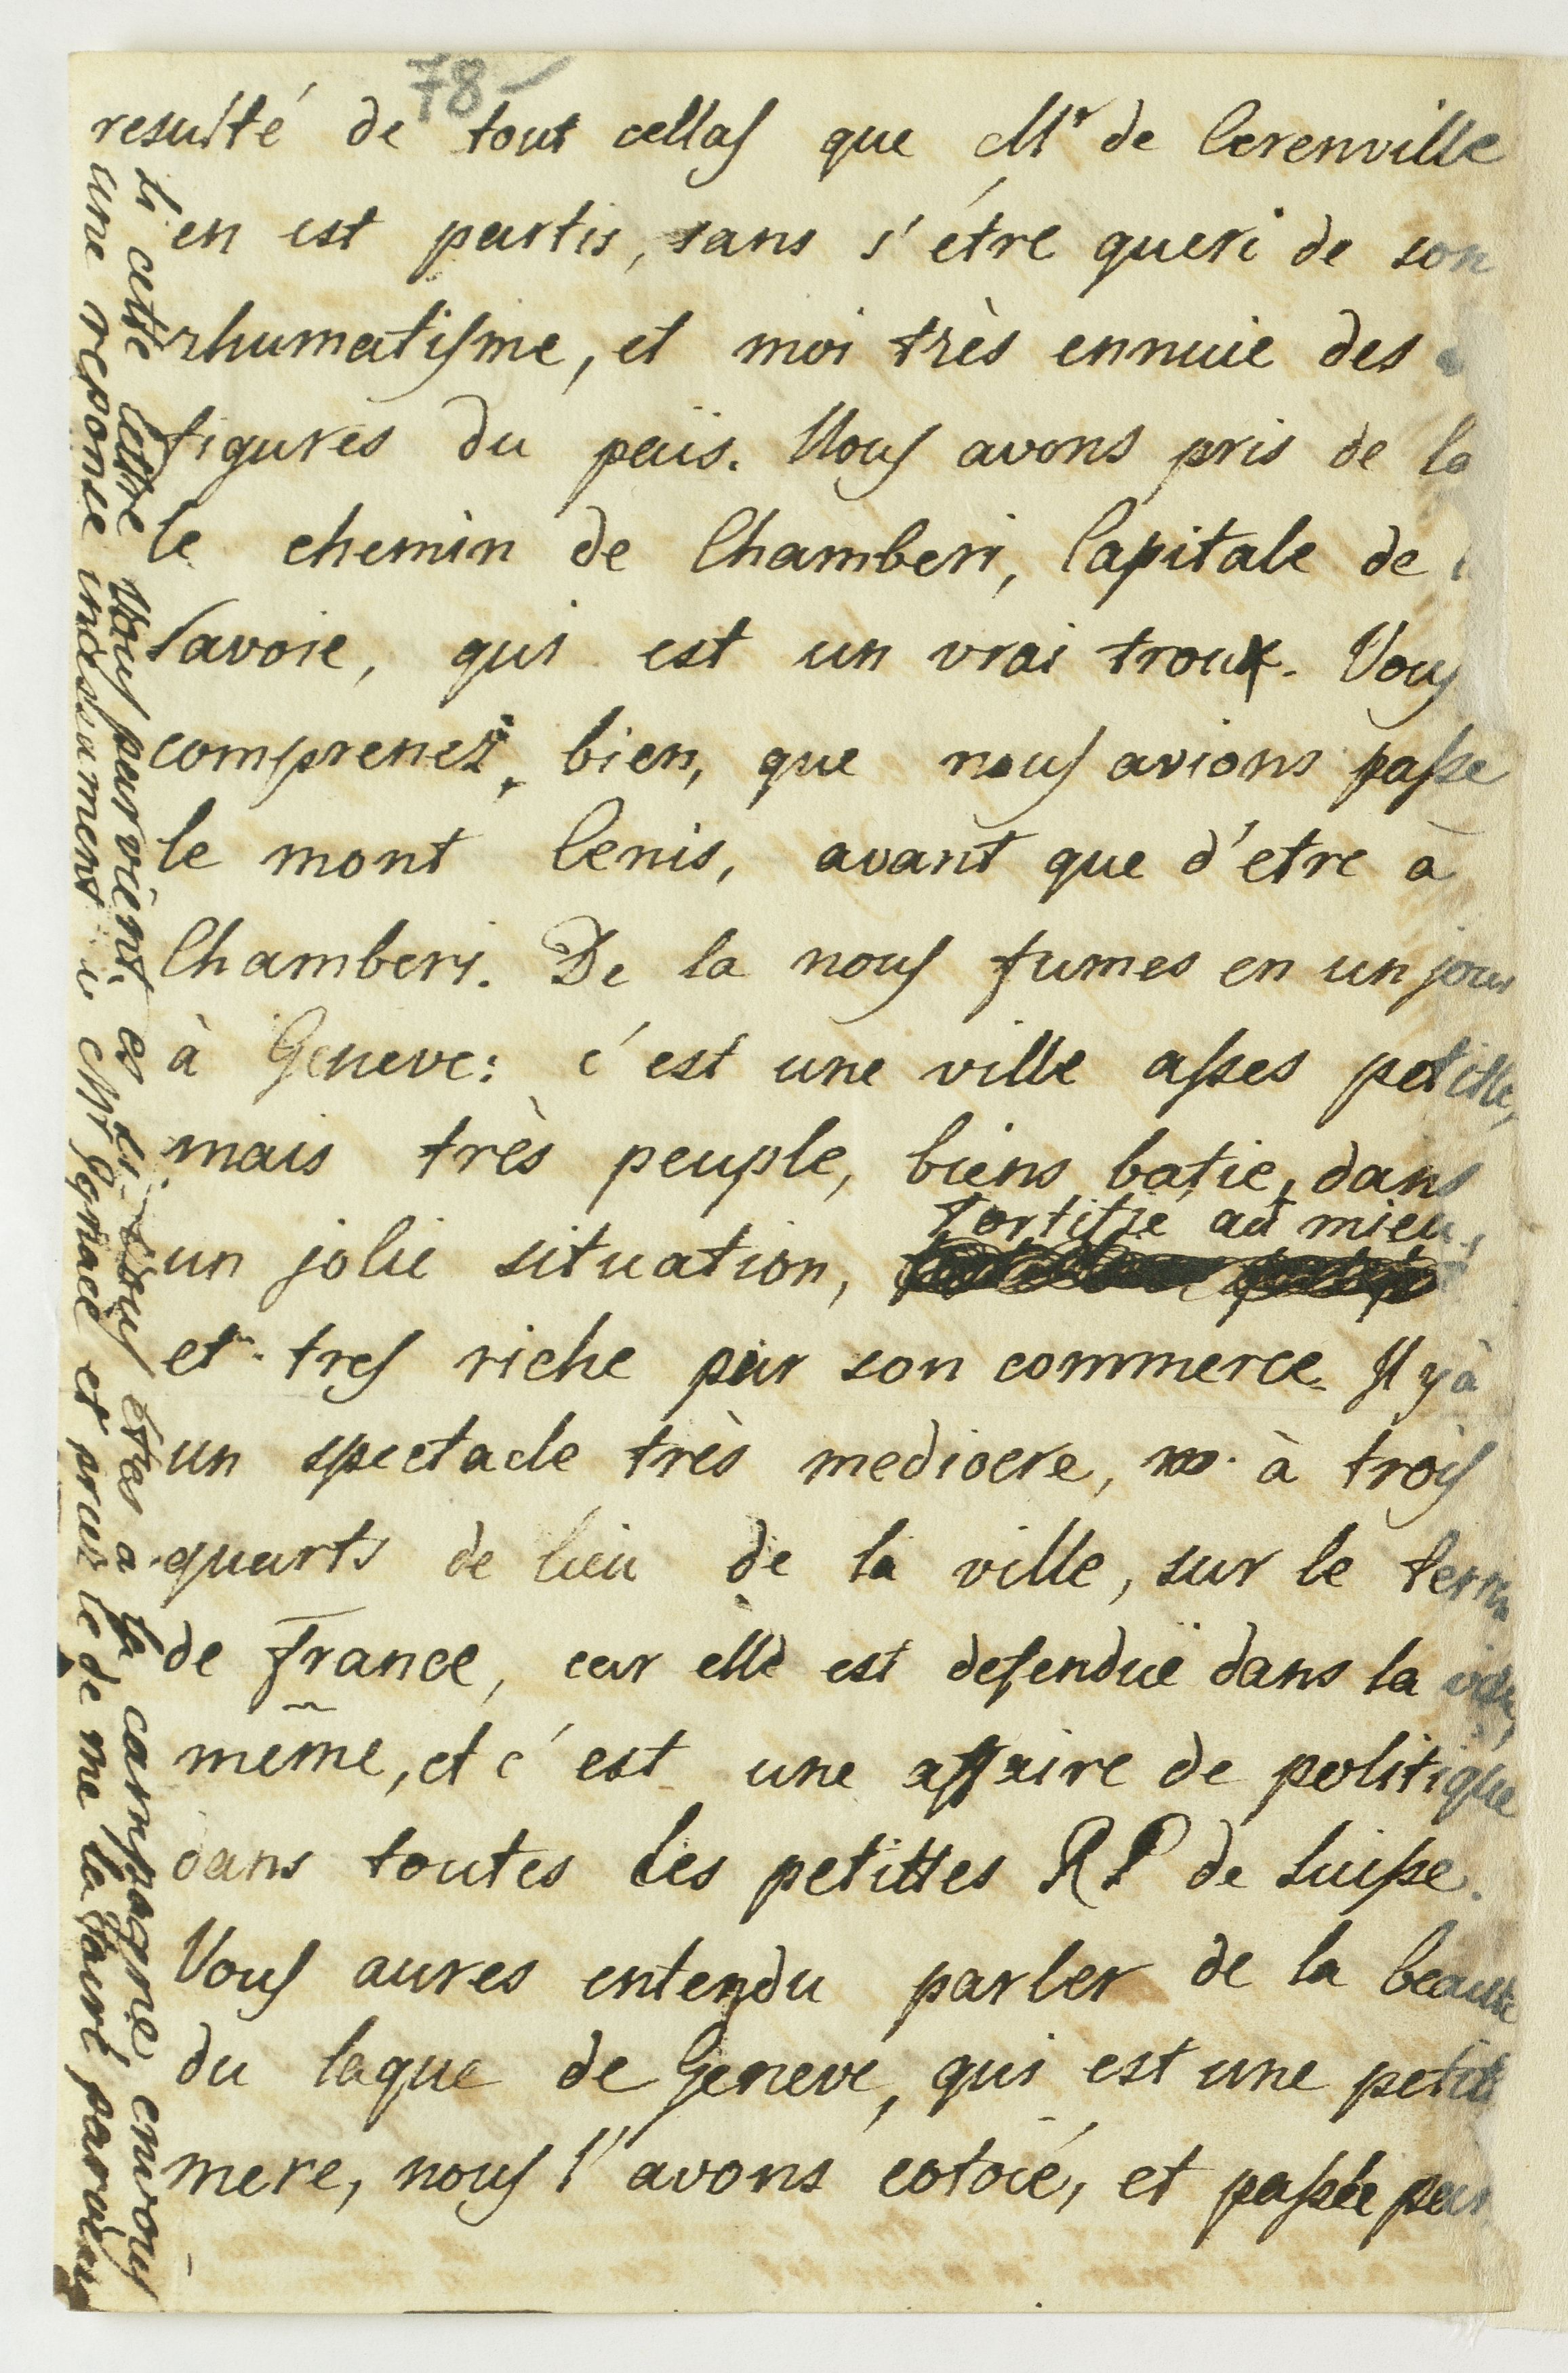 78
resulté de tout cellas que Mr de Cerenville
en est partis, sans s'étre queri de son
rhumatisme, et moi très ennuie des
figures du païs. Nous avons pris de la
le chemin de Chamberi, Capitale de
Savoie, qui est un vrai trou. Vous
comprenez, bien, que nous avions passe
le mont Cenis, avant que d'etre à
Chamberi. De la nous fumes en un jour
à Geneve: c'est une ville asses petitte,
mais très peuple, biens batie, dans
un jolie situation, fortifié au mieu,
et tres riche par son commerce. Il y à
un spectacle très mediocre, à trois
quarts de lieu de la ville, sur le
de France, car elle est defenduë dans la
même, et c'est une affaire de politique
dans toutes les petittes RP de Suisse.
Vous aures entendu parler de la beauté
du laque de Geneve, qui est une petite
mere, nous l'avons cotoié, et passée par
Si cette lettre Vous parvient, et si Vous étes a la campagne, envoiés
une reponse incessament à Mr Ignace et priez le de me la faire